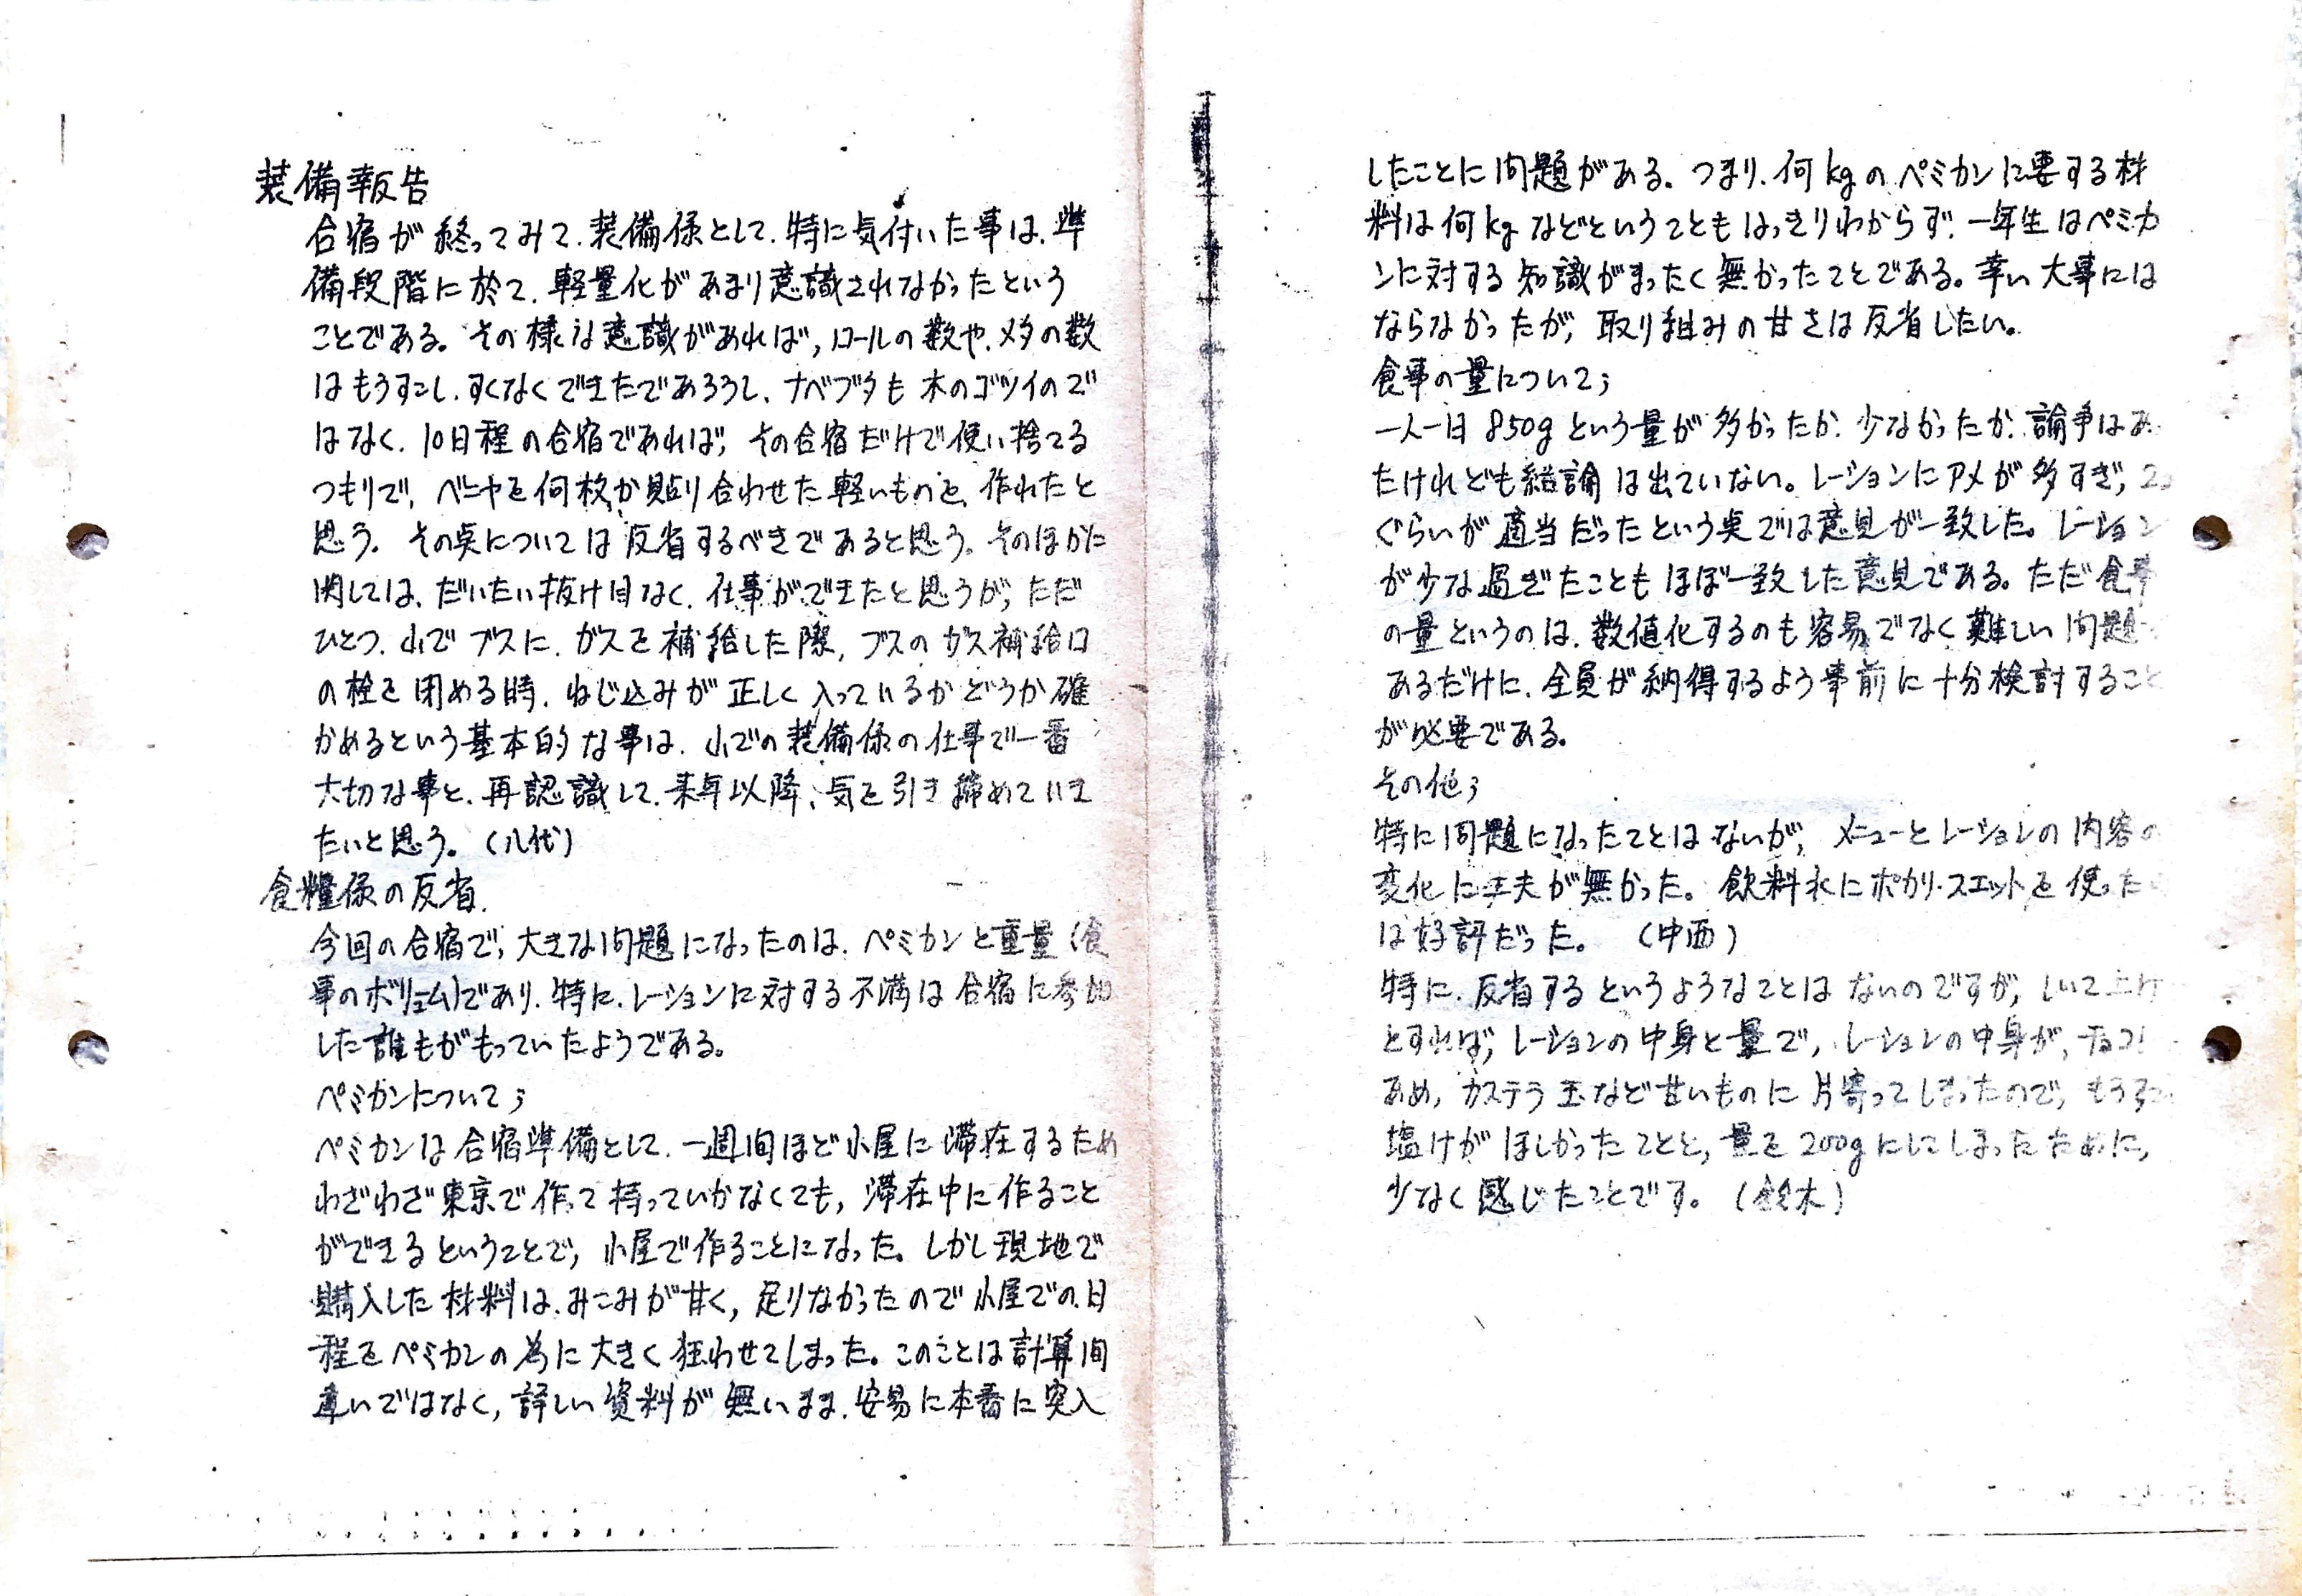 装備報告
合宿が終ってみて、装備係として、特に気付いた事は、準
備段階に於て、軽量化があまり意識されなかったという
ことである。その様な意識があれば、ロールの数や、メタの数
はもうすこし、すくなくできたであろうし、ナベブタも木のゴツイので
はなく、10日程の合宿であれば、その合宿だけで使い捨てる
つもりで、ベニヤを何枚か貼り合わせた軽いものを、作れたと
思う。その点については反省するべきであると思う。そのほかに
関しては、だいたい抜け目なく、仕事ができたと思うが、ただ
ひとつ、山でブスに、ガスを補給した際、ブスのガス補給口
の栓を閉める時、ねじ込みが正しく入っているかどうか確
かめるという基本的な事は、山での装備係の仕事で一番
大切な事と、再認識して、来年以降、気を引き締めていき
たいと思う。(八代)
食糧係の反省、
今回の合宿で、大きな問題になったのは、ペミカンと重量(食
事のボリューム)であり、特に、レーションに対する不満は合宿に参加
した誰もがもっていたようである。
ペミカンについて;
ペミカンは合宿準備として、一週間ほど小屋に滞在するため
わざわざ東京で作って持っていかなくても、滞在中に作ること
ができるということで、小屋で作ることになった。しかし現地で
購入した材料は、みこみが甘く、足りなかったので小屋での日
程をペミカンの為に大きく狂わせてしまった。このことは計算間
違いではなく、詳しい資料が無いまま、安易に本番に突入
したことに問題がある。つまり、何kgのペミカンに要する材
料は何kgなどということもはっきりわからず、一年生はペミカ
ンに対する知識がまったく無かったことである。幸い大事には
ならなかったが、取り組みの甘さは反省したい。
食事の量について;
一人一日850gという量が多かったか、少なかったか、論争はあ
たけれども結論は出ていない。レーションにアメが多すぎ、
ぐらいが適当だったという点では意見が一致した。レーション
が少な過ぎたこともほぼ一致した意見である。ただ食事
の量というのは、数値化するのも容易でなく難しい問題
あるだけに、全員が納得するよう事前に十分検討すること
が必要である。
その他;
特に問題になったことはないが、メニューとレーションの内容の
変化に工夫が無かった。飲料水にポカリ・スエットを使った
は好評だった。(中西)
特に、反省するというようなことはないのですが、しいて上げ
とすれば、レーションの中身と量で、レーションの中身が、チョコ
あめ、カステラ玉など甘いものに片寄ってしまったので、もう
塩けがほしかったことと、量を200gにしてしまったために、
少なく感じたことです。(鈴木)